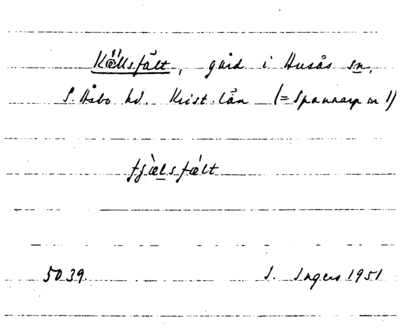 Källsfält, gård i Ausås sn,
S. Åsbo hd. Krist. län (= Spannarp nr 1)
fjælsfælt
5039. I. Ingers 1951